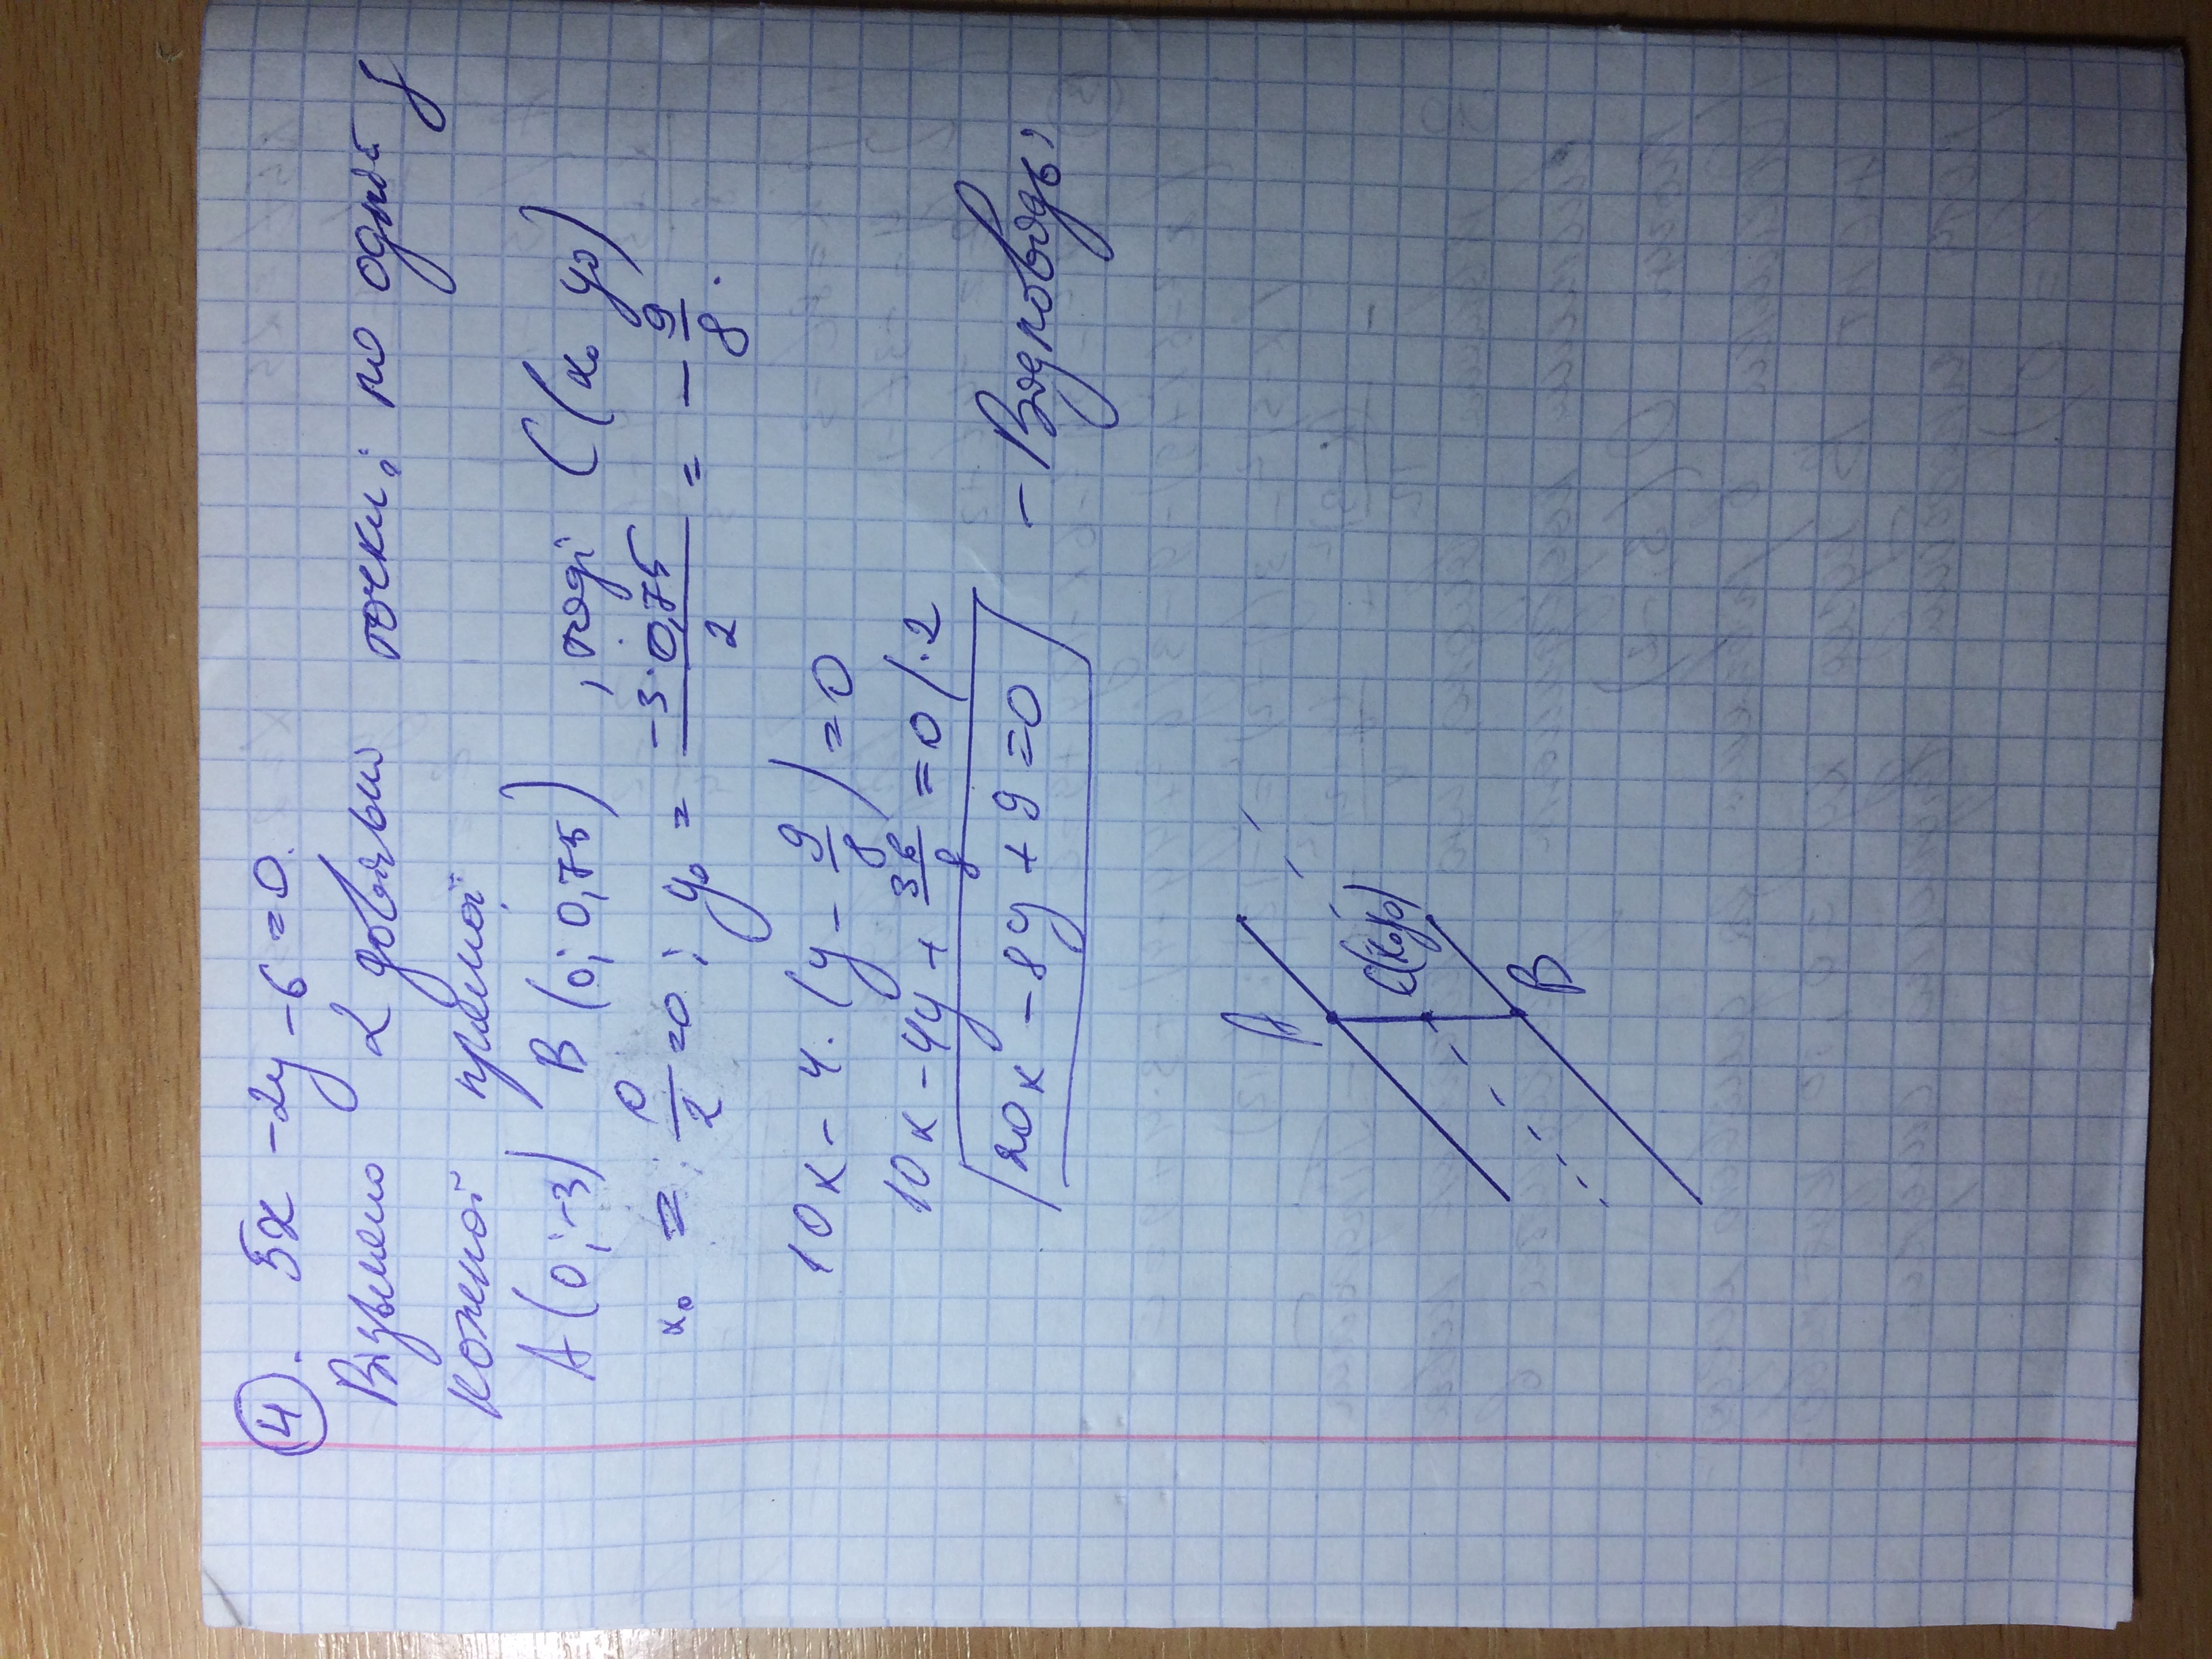 4. 5x - 2y - 6 = 0.
Візьмемо 2 довільні точки, по одній з
кожної прямої
A(0; -3) B(0; 0,75), тоді C(x₀ y₀)
x₀ = 0/2 = 0; y₀ = -3·0,75/2 = -9/8.
10x - 4·(y - 9/8) = 0
10x - 4y + 36/8 = 0 /·2
20x - 8y + 9 = 0 - Відповідь
A
C(x₀ y₀)
B